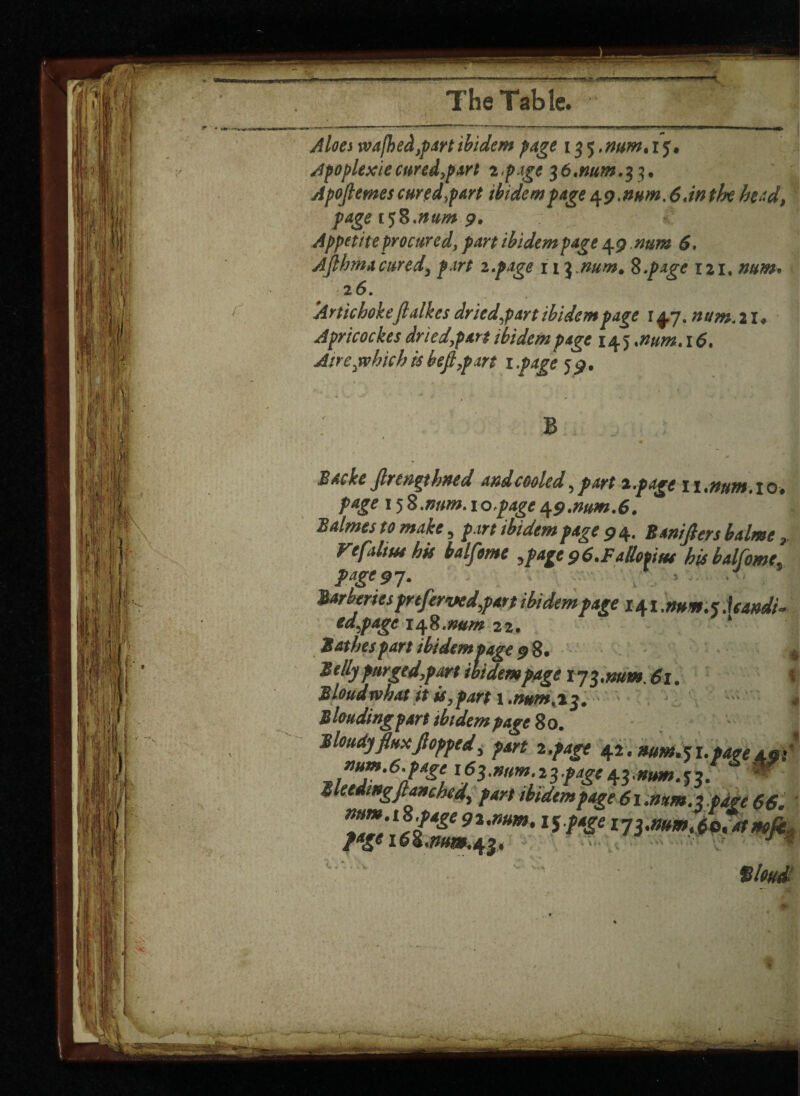 The Table.
Aloes waſhed,part ibidem page 135.num.15.
Apoplexie cured,part 2.page 36.num.33.
Apoſtemes cured,part ibidem page 49.num.6.in the head,
page 158.num 9.
Appetite procured, part ibidem page 49.num 6.
Aſthma cured, part 2.page 113.num. 8.page 121. num.
26.
Artichoke ſtalkes dried,part ibidem page 147. num.21.
Apricockes dried,part ibidem page 145.num.16.
Aire,which is beſt,part 1.page 59.
B
Backe ſtrengthned and cooled, part 2.page 11.num.10.
page 158.num.10.page 49.num.6.
Balmes to make, part ibidem page 94. Baniſters balme,
Veſalius his balſome ,page 96.Fallopius his balſome,
page 97.
Barberies preſerved,part ibidem page 141.num.5.candi-
ed,page 148.num 22.
Bathes part ibidem page 98.
Belly purged,part ibidem page 173.num.61.
Bloud what it is, part 1.num.23.
Blouding part ibidem page 80.
Bloudy flux ſtopped, part 2.page 42. num.51.page 49.
num.6.page 163.num.23.page 43.num.53.
Bleeding ſtanched, part ibidem page 61.num.3.page 66.
num.18.page 92.num. 15.page 173.num.60.at noſe,
page 168.num.43.
Bloud